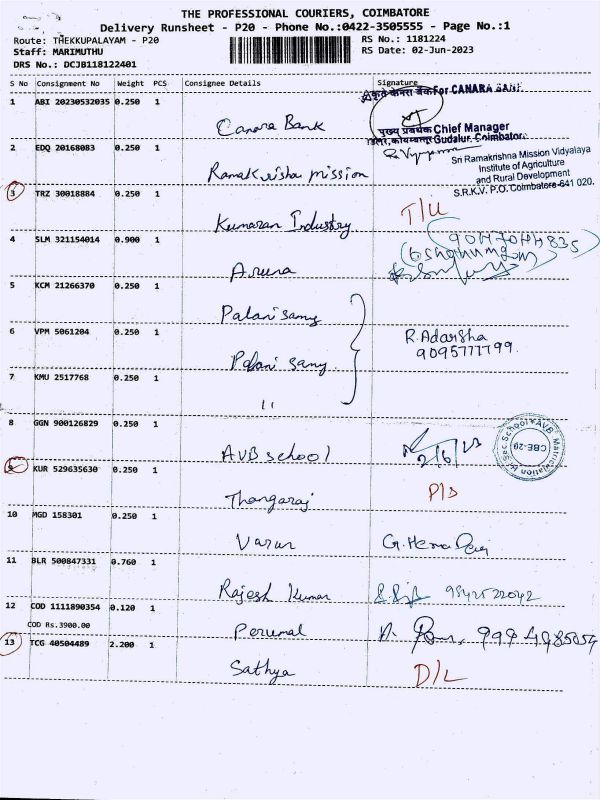 THE PROFESSIONAL COURIERS, COIMBATORE
Delivery Runsheet - P20 - Phone No.:0422-3505555 - Page No.:1
Route: THEKKUPALAYAM - P20
RS No.: 1181224
Staff: MARIMUTHU
RS Date: 02-Jun-2023
DRS No.: DCJB118122401
S No Consignment No Weight PCS Consignee Details Signature
1 ABI 20230532035 0.250 1
Canara Bank
For CANARA BANK
मुख्य प्रबंधक Chief Manager
Gudalur, Coimbatore
2 EDQ 20168083 0.250 1
Ramakrishna mission
Sri Ramakrishna Mission Vidyalaya
Institute of Agriculture
and Rural Development
S.R.K.V. P.O. Coimbatore-641 020.
3 TRZ 30018884 0.250 1
Kumaran Industry
T/U
4 SLM 321154014 0.900 1
Aruna
5 KCM 21266370 0.250 1
Palani samy
6 VPM 5061204 0.250 1
Palani samy
R. Adarsha
9095777799
7 KMU 2517768 0.250 1
"
8 GGN 900126829 0.250 1
AVB school
2/6/23
9 KUR 529635630 0.250 1
Thangaraj
P/S
10 MGD 158301 0.250 1
Varun
11 BLR 500847331 0.760 1
Rajesh Kumar
12 COD 1111890354 0.120 1
COD Rs.3900.00
Perumal
13 TCG 40504489 2.200 1
Sathya
D/L